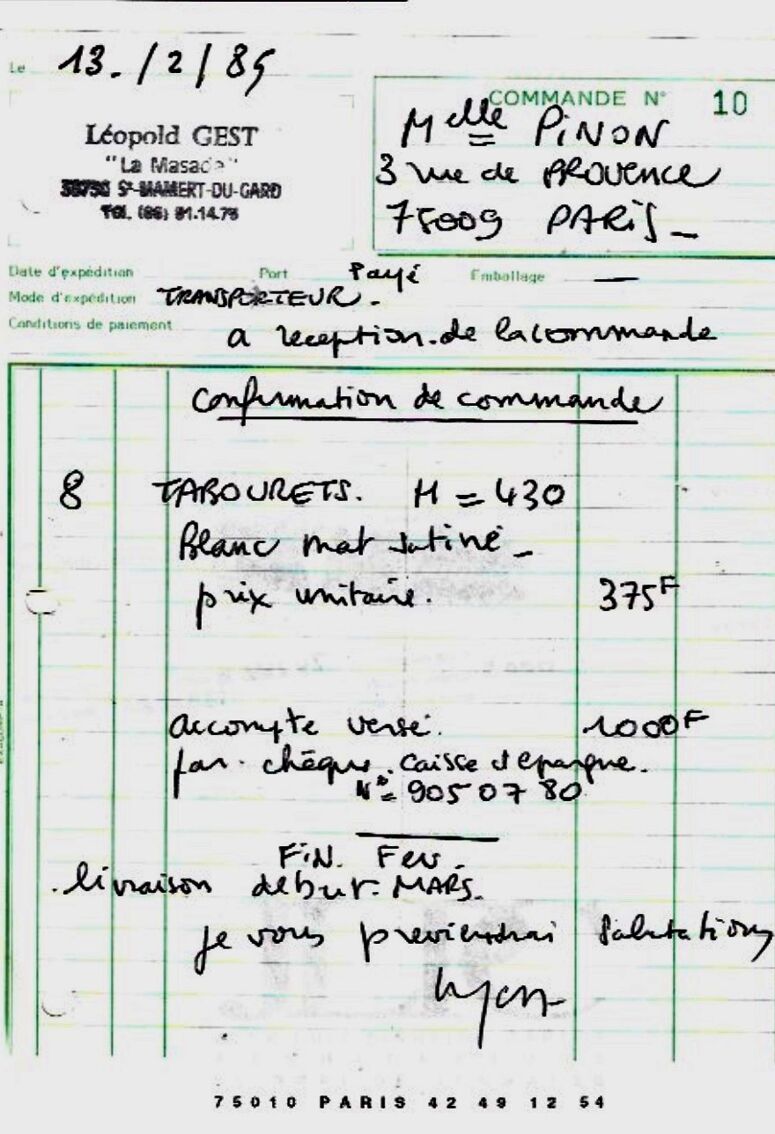 Le 13./2/85
COMMANDE N° 10
Léopold GEST
"La Masade"
30730 St-MAMERT-DU-GARD
Tél. (66) 81.14.75
Melle PINON
3 rue de PROVENCE
75009 PARIS_
Date d'expédition Port Payé Emballage —
Mode d'expédition TRANSPORTEUR.
Conditions de paiement a reception de la commande
Confirmation de commande
8 TABOURETS. H = 430
Blanc mat satiné_
prix unitaire. 375F
accompte versé. 1000F
par chèque caisse d'epargne.
N°= 9050780
FIN. Fev.
livraison début MARS.
je vous previendrai Salutations
75010 PARIS 42 49 12 54